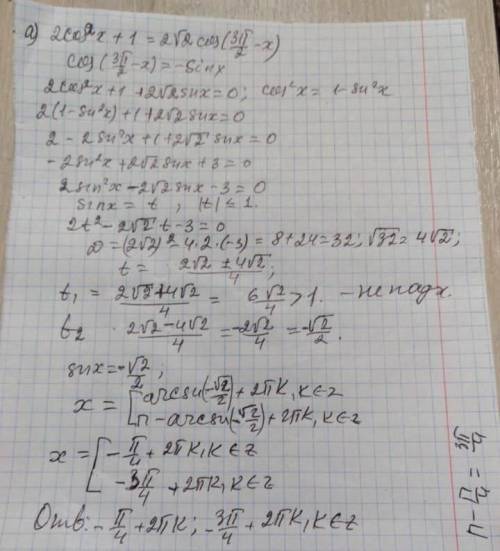 а) 2cos²x + 1 = 2√2 cos(3π/2 - x)
cos(3π/2 - x) = - sinx
2cos²x + 1 + 2√2 sinx = 0; cos²x = 1 - sin²x
2(1 - sin²x) + 1 + 2√2 sinx = 0
2 - 2sin²x + 1 + 2√2 sinx = 0
- 2sin²x + 2√2 sinx + 3 = 0
2sin²x - 2√2 sinx - 3 = 0
sinx = t , |t| ≤ 1.
2t² - 2√2 t - 3 = 0
D = (2√2)² - 4·2·(-3) = 8 + 24 = 32; √32 = 4√2;
t = (2√2 ± 4√2)/4;
t₁ = (2√2 + 4√2)/4 = 6√2/4 > 1. - не подх.
t₂ (2√2 - 4√2)/4 = -2√2/4 = -√2/2.
sinx = -√2/2;
x = [ arcsin(-√2/2) + 2πk, k∈z
π - arcsin(-√2/2) + 2πk, k∈z
x = [ -π/4 + 2πk, k∈z
-3π/4 + 2πk, k∈z
Отв: -π/4 + 2πk; -3π/4 + 2πk, k∈z
π - π/4 = 3π/4